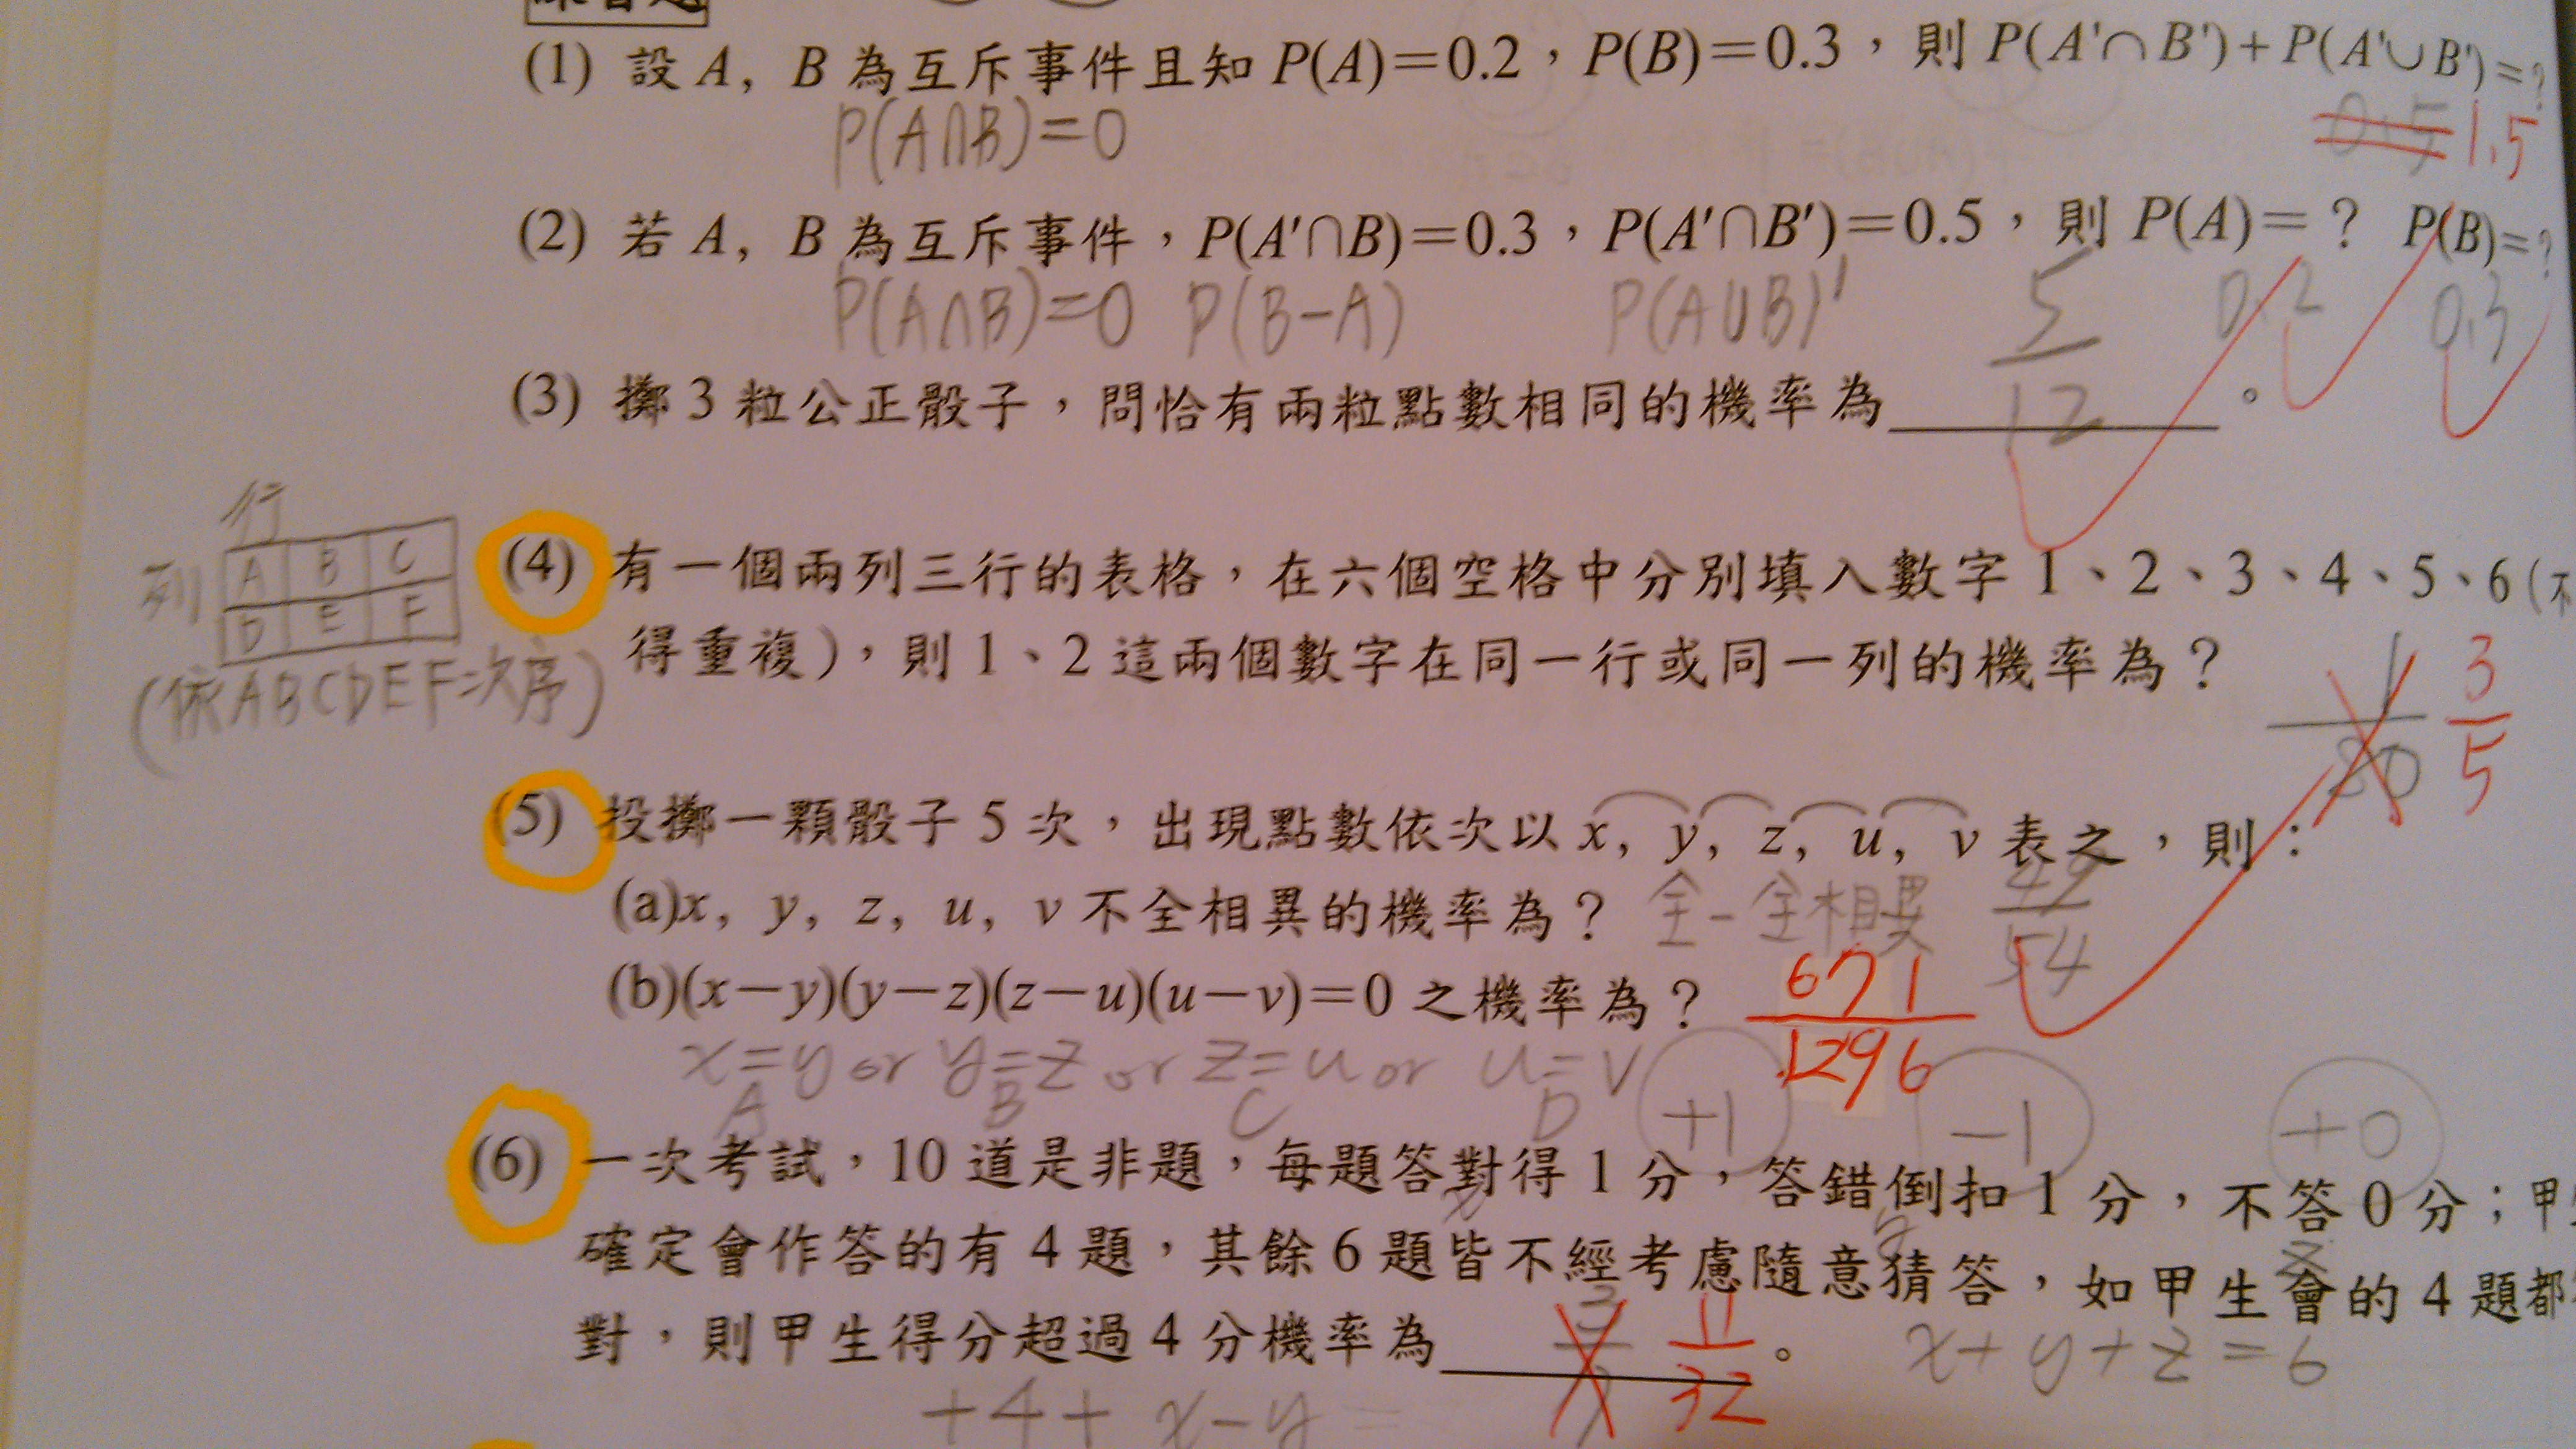 (1) 設 A, B 為互斥事件且知 P(A)=0.2，P(B)=0.3，則 P(A'∩B')+P(A'∪B')=?
P(A∩B)=0
0.5 1.5
(2) 若 A, B 為互斥事件，P(A'∩B)=0.3，P(A'∩B')=0.5，則 P(A)=? P(B)=?
P(A∩B)=0 P(B-A) P(A∪B)' 0.2 0.3
(3) 擲 3 粒公正骰子，問恰有兩粒點數相同的機率為 5/12 。
行
列 A B C
D E F
(依ABCDEF次序)
(4) 有一個兩列三行的表格，在六個空格中分別填入數字 1、2、3、4、5、6(不
得重複)，則 1、2 這兩個數字在同一行或同一列的機率為？
3/5
(5) 投擲一顆骰子 5 次，出現點數依次以 x, y, z, u, v 表之，則：
(a)x, y, z, u, v 不全相異的機率為？ 全-全相異 49/54
(b)(x-y)(y-z)(z-u)(u-v)=0 之機率為？ 671/1296
x=y or y=z or z=u or u=v
A B C D +1 -1 +0
(6) 一次考試，10 道是非題，每題答對得 1 分，答錯倒扣 1 分，不答 0 分；甲
x y z
確定會作答的有 4 題，其餘 6 題皆不經考慮隨意猜答，如甲生會的 4 題都
對，則甲生得分超過 4 分機率為 11/32 。 x+y+z=6
+4+ x-y =